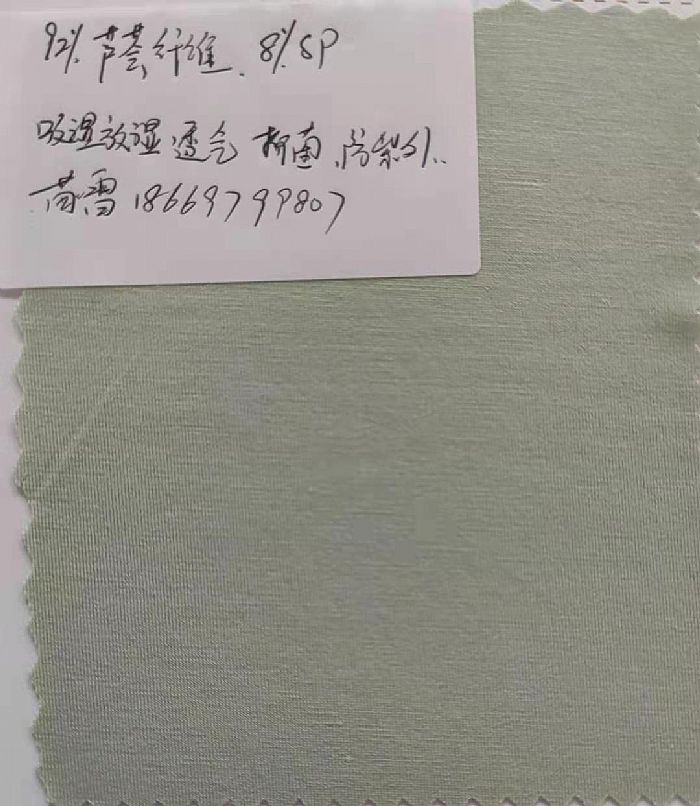 92% 芦荟纤维. 8%SP
吸湿放湿 透气 抑菌.防紫外..
雪18669799807